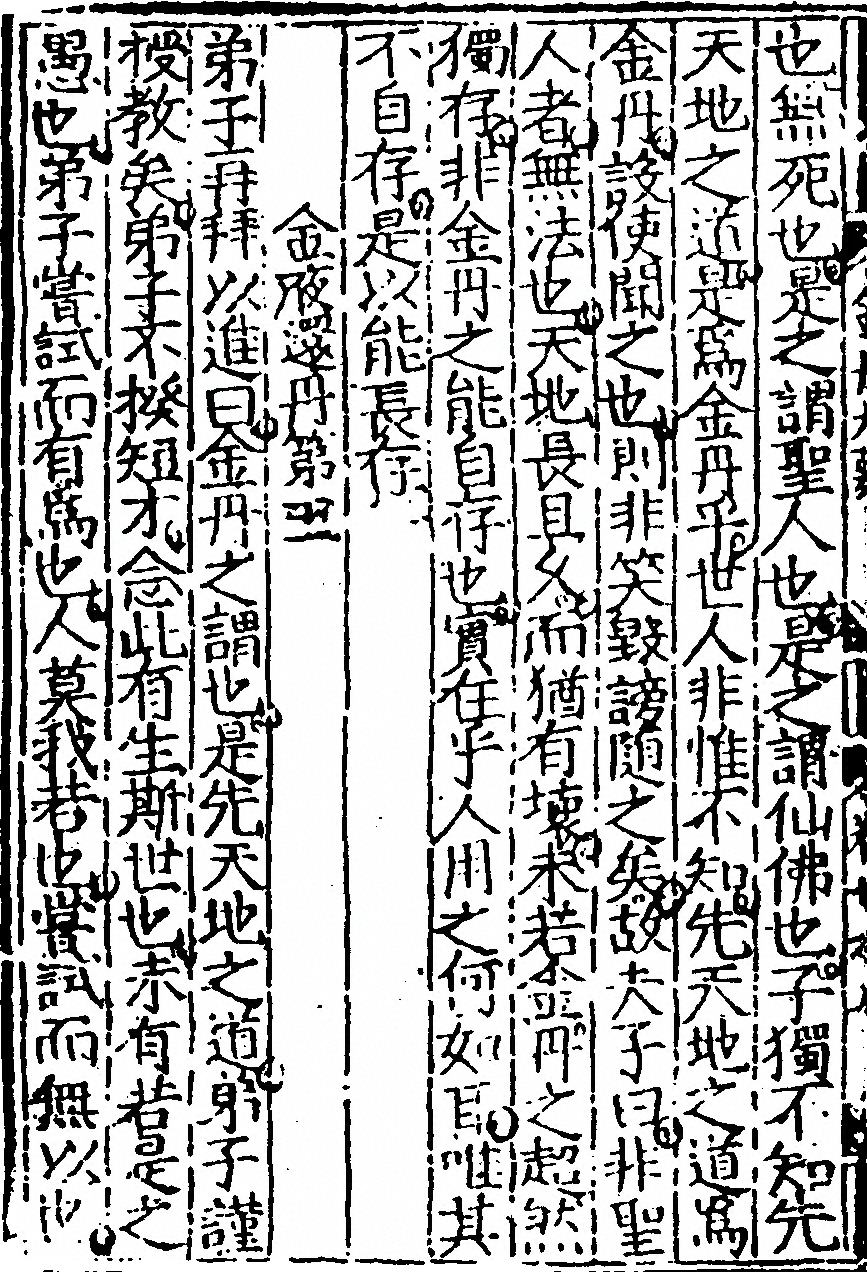 也無死也是之謂聖人也是之謂仙佛也子獨不知先
天地之道是為金丹乎世人非惟不知先天地之道為
金丹設使聞之也則非笑毀謗隨之矣故夫子曰非聖
人者無法也天地長且久而猶有壞未若金丹之超然
獨存非金丹之能自存也實在乎人用之何如耳唯其
不自存是以能長存
金液還丹第
弟子再拜以進曰金丹之謂也是先天地之道弟子謹
授教矣弟子不揆短才念此有生斯世也未有若是之
愚也弟子嘗試而有為也人莫我若也嘗試而無以